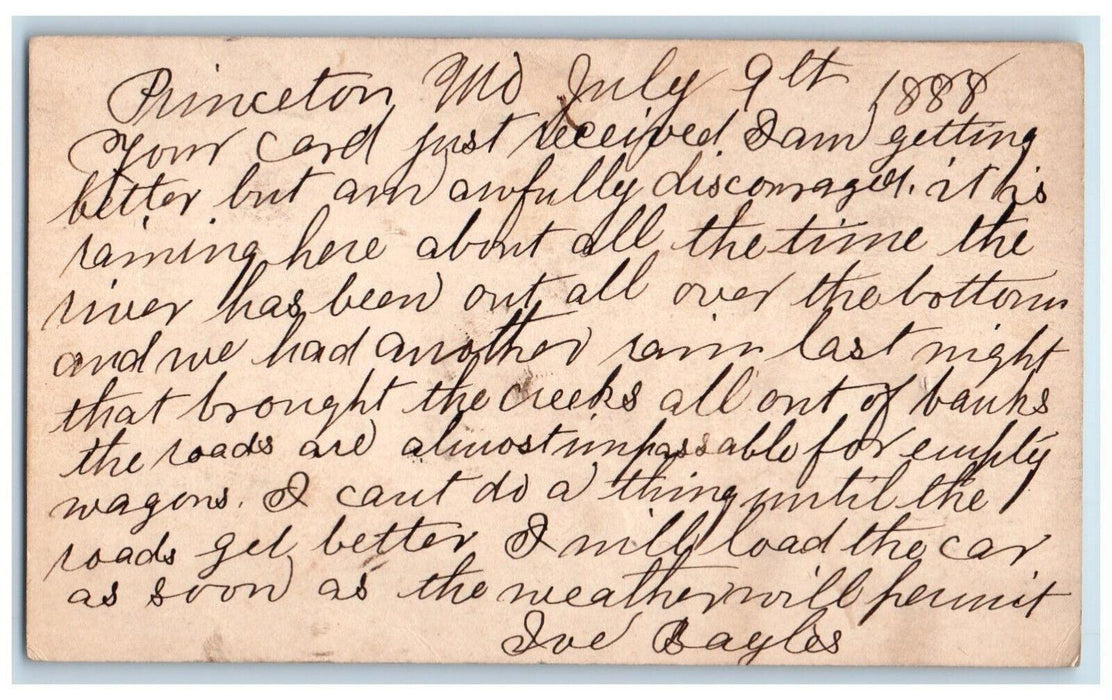 Princeton Mo July 9th 1888
Your card just received I am getting
better but am awfully discouraged. it is
raining here about all the time the
river has been out all over the bottoms
and we had another rain last night
that brought the creeks all out of banks
the roads are almost impassable for empty
wagons. I cant do a thing until the
roads get better I will load the car
as soon as the weather will permit
Joe Bayles